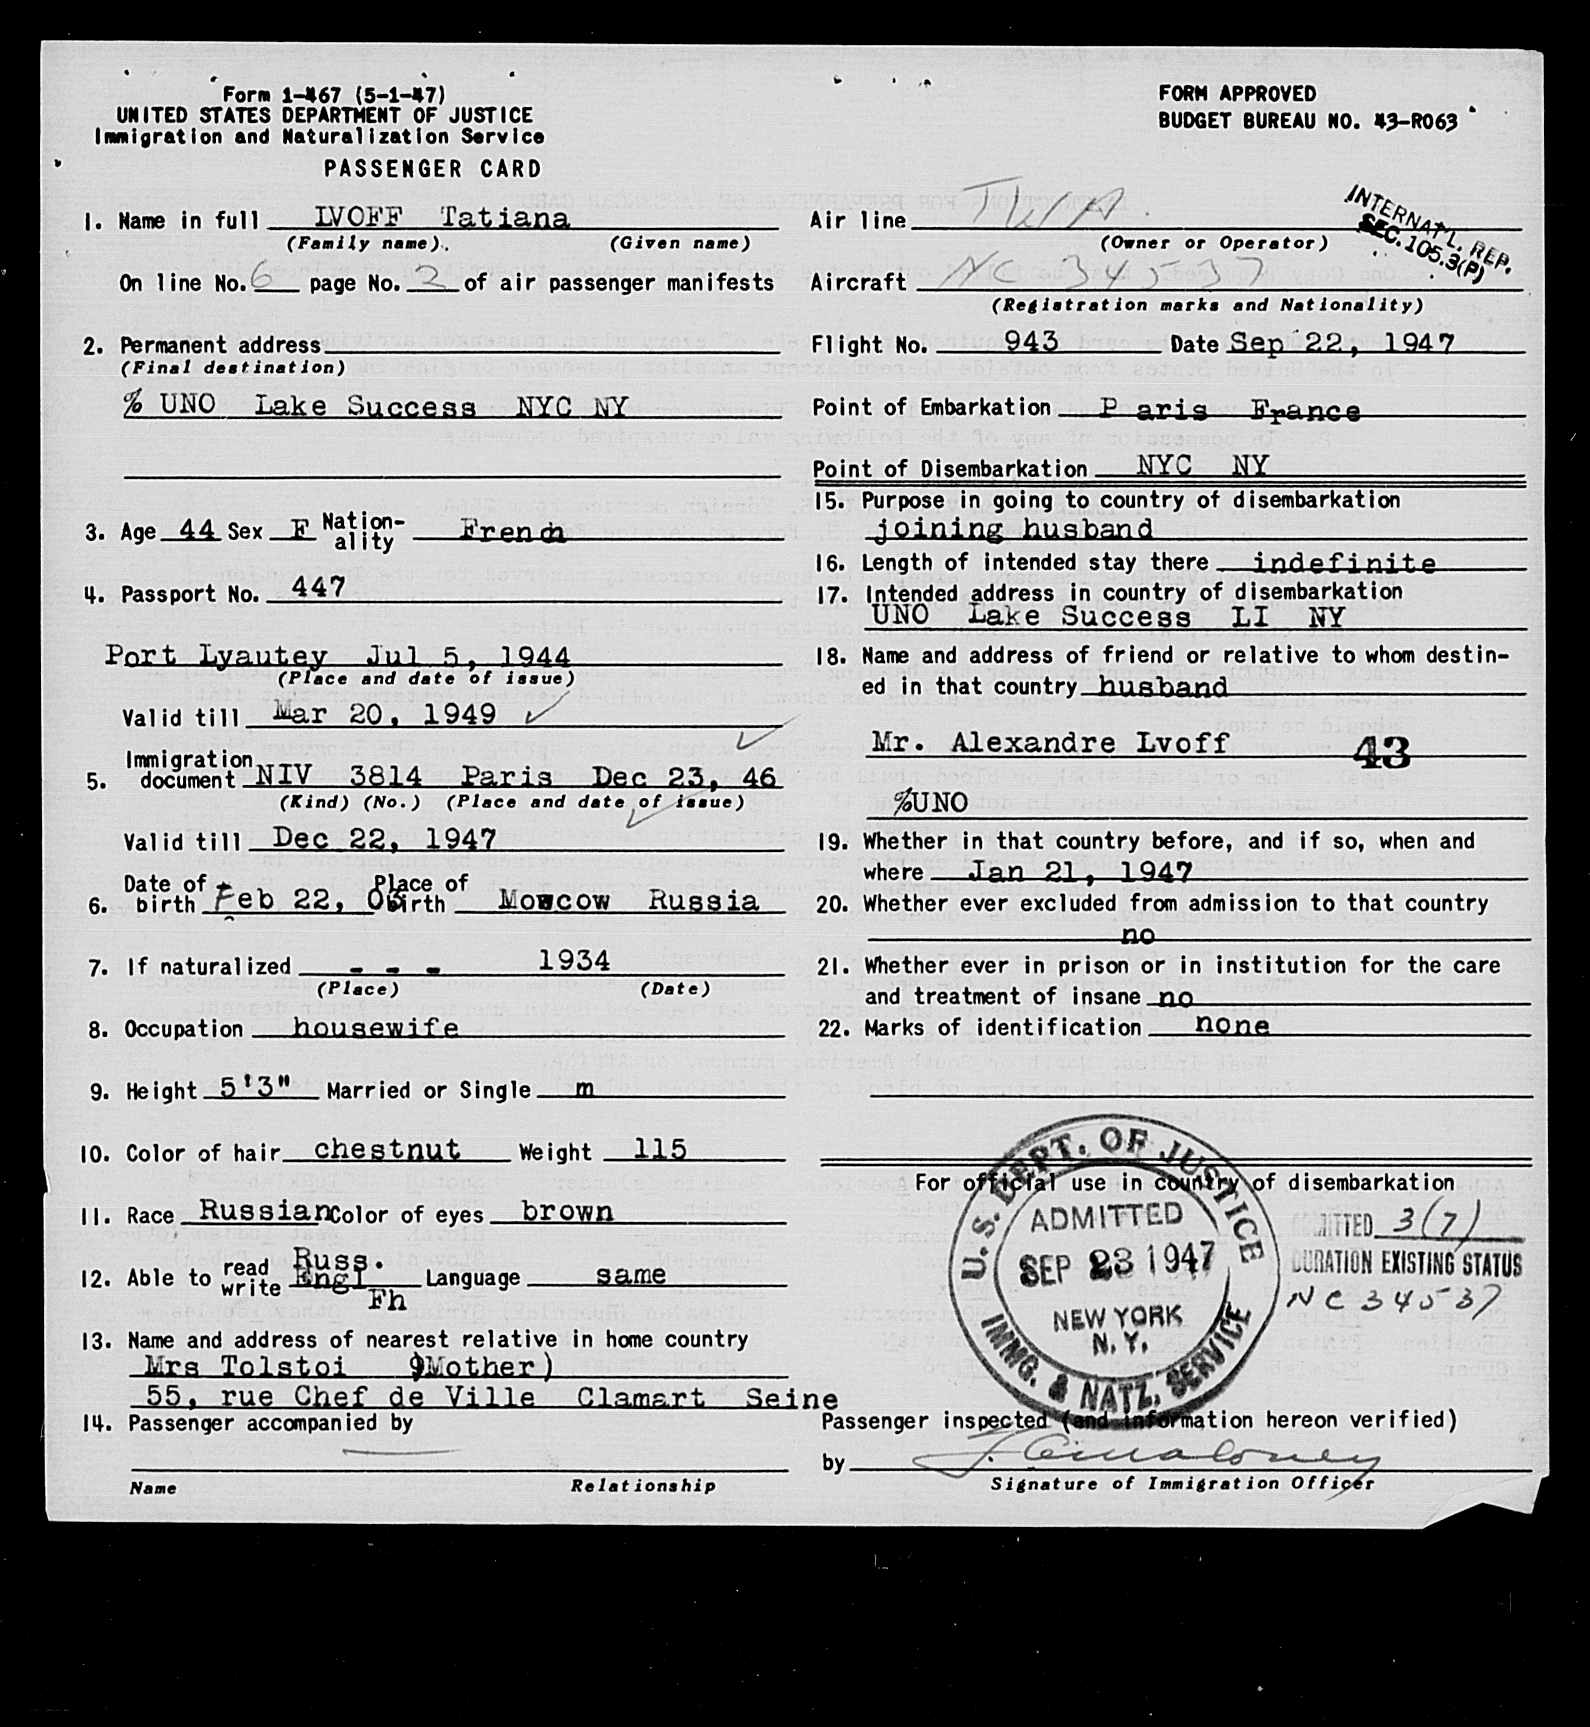 Form 1-467 (5-1-47)
UNITED STATES DEPARTMENT OF JUSTICE
Immigration and Naturalization Service
PASSENGER CARD
FORM APPROVED
BUDGET BUREAU NO. 43-R063
1. Name in full LVOFF Tatiana
(Family name). (Given name)
On line No. 6 page No. 2 of air passenger manifests
2. Permanent address
(Final destination)
% UNO Lake Success NYC NY
3. Age 44 Sex F Nation-ality French
4. Passport No. 447
Port Lyautey Jul 5, 1944
(Place and date of issue)
Valid till Mar 20, 1949
5. Immigration document NIV 3814 Paris Dec 23, 46
(Kind) (No.) (Place and date of issue)
Valid till Dec 22, 1947
6. Date of birth Feb 22, 03 Place of birth Moscow Russia
7. If naturalized - - - 1934
(Place) (Date)
8. Occupation housewife
9. Height 5'3" Married or Single m
10. Color of hair chestnut Weight 115
11. Race Russian Color of eyes brown
12. Able to read write Russ. Engl Fh Language same
13. Name and address of nearest relative in home country
Mrs Tolstoi 9Mother)
55, rue Chef de Ville Clamart Seine
14. Passenger accompanied by
Name Relationship
Air line TWA
(Owner or Operator)
INTERNAT'L. REP.
SEC. 105.3(P)
Aircraft NC 34537
(Registration marks and Nationality)
Flight No. 943 Date Sep 22, 1947
Point of Embarkation P aris France
Point of Disembarkation NYC NY
15. Purpose in going to country of disembarkation
joining husband
16. Length of intended stay there indefinite
17. Intended address in country of disembarkation
UNO Lake Success LI NY
18. Name and address of friend or relative to whom destin-
ed in that country husband
Mr. Alexandre Lvoff 43
%UNO
19. Whether in that country before, and if so, when and
where Jan 21, 1947
20. Whether ever excluded from admission to that country
no
21. Whether ever in prison or in institution for the care
and treatment of insane no
22. Marks of identification none
For official use in country of disembarkation
U.S. DEPT. OF JUSTICE
ADMITTED
SEP 23 1947
NEW YORK
N.Y.
IMMG. & NATZ. SERVICE
ADMITTED 3(7)
DURATION EXISTING STATUS
NC 34537
Passenger inspected (and information hereon verified)
by
Signature of Immigration Officer